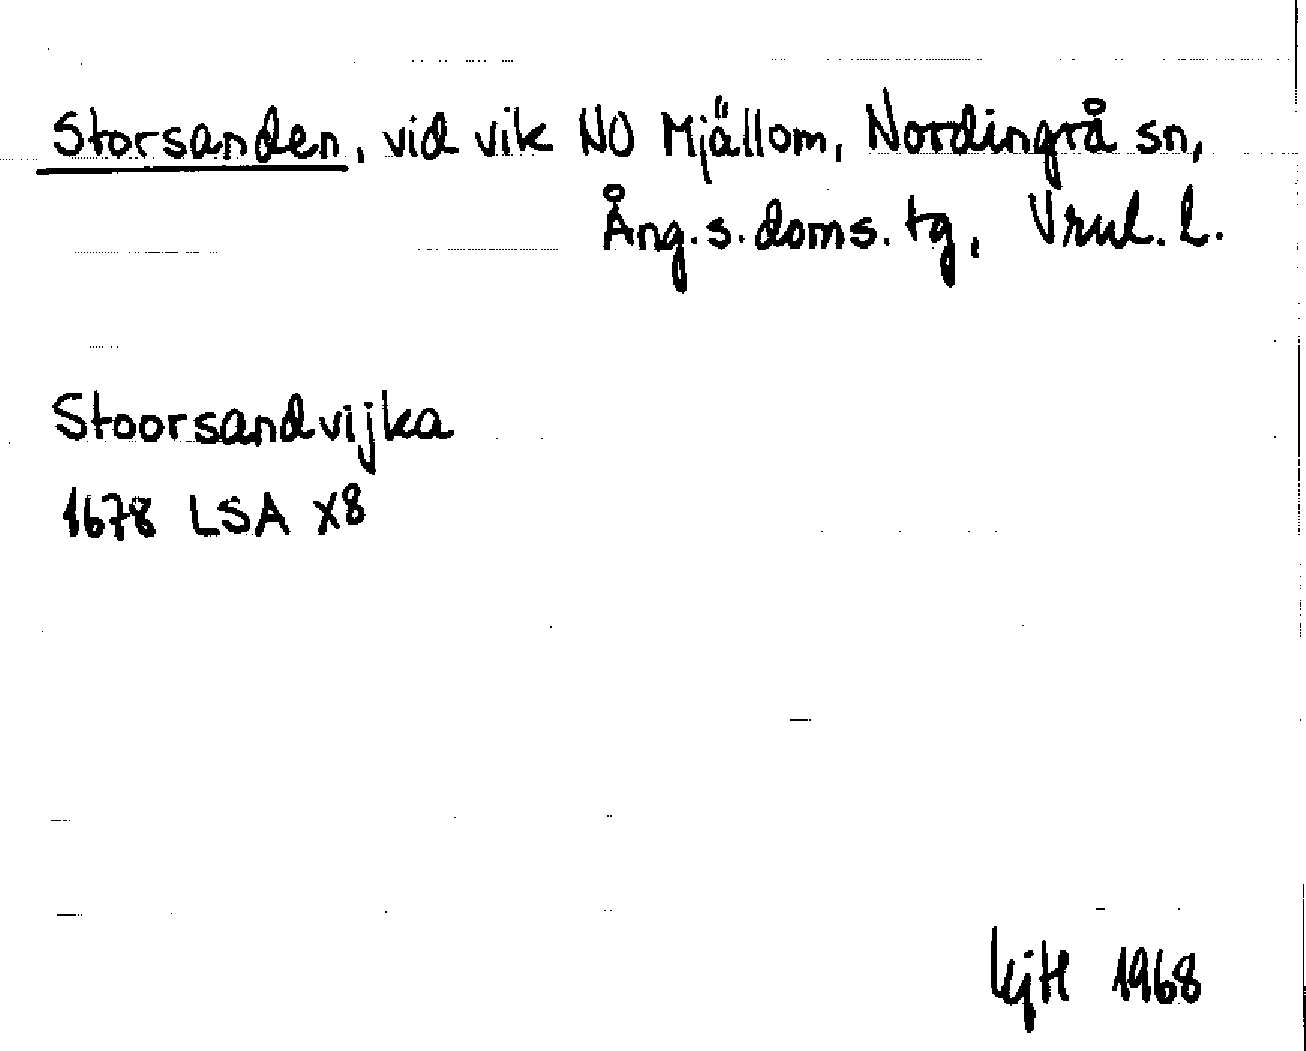 Storsanden, vid vik NO Mjällom, Nordingrå sn,
Ång.s.doms.tg, Vrnl. l.
Stoorsandvijka
1678 LSA X8
KjH 1968